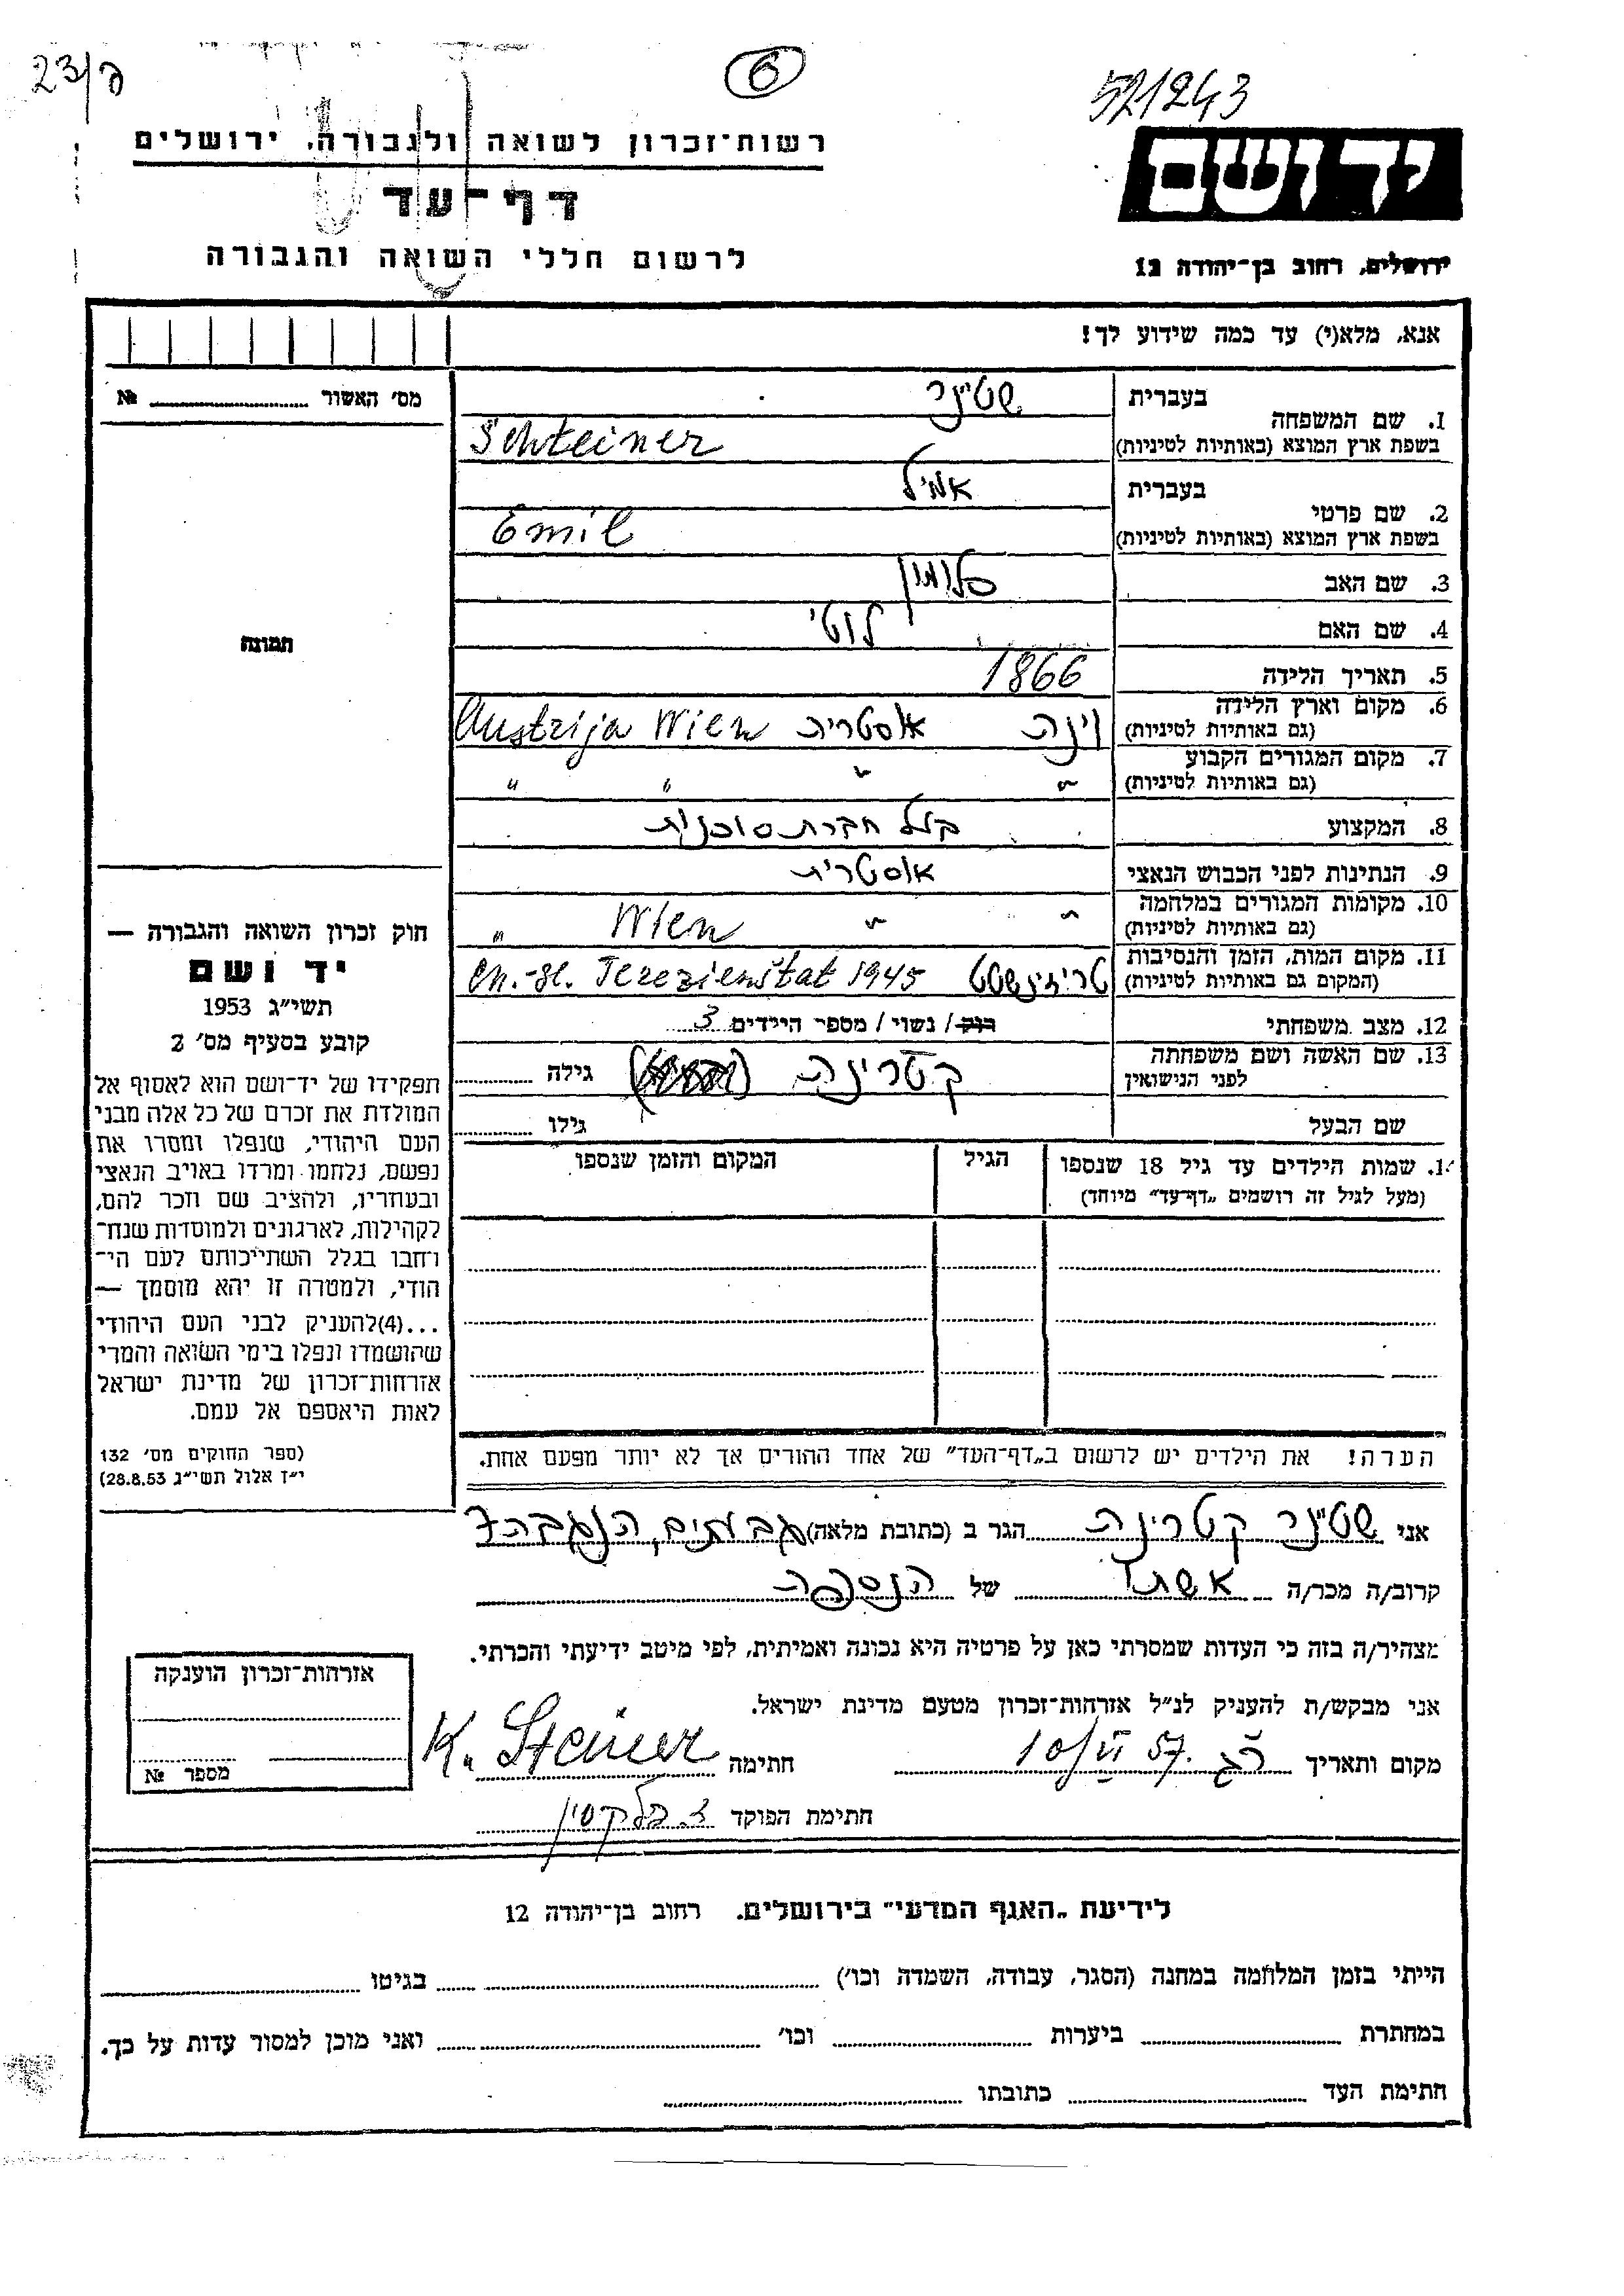 23/ק
6
521243
רשות־זכרון לשואה ולגבורה, ירושלים
דף־עד
לרשום חללי השואה והגבורה
יד ושם
ירושלים, רחוב בן־יהודה 12
אנא, מלא(י) עד כמה שידוע לך!
מס׳ האשור № ........
תמונה
1. שם המשפחה
בעברית שטיינר
בשפת ארץ המוצא (באותיות לטיניות) Schteiner
2. שם פרטי
בעברית אמיל
בשפת ארץ המוצא (באותיות לטיניות) Emil
3. שם האב סלומון
4. שם האם לוטי
5. תאריך הלידה 1866
6. מקום וארץ הלידה וינה אוסטריה Austrija Wien
(גם באותיות לטיניות)
7. מקום המגורים הקבוע " " " "
(גם באותיות לטיניות)
8. המקצוע חברת סוכנות
9. הנתינות לפני הכבוש הנאצי אוסטרית
10. מקומות המגורים במלחמה " " Wien "
(גם באותיות לטיניות)
11. מקום המות, הזמן והנסיבות Terezienstat 1945
(המקום גם באותיות לטיניות)
12. מצב משפחתי רוק / נשוי / מספר הילדים 3
13. שם האשה ושם משפחתה קטרינה גילה ........
לפני הנישואין
שם הבעל גילו ........
14. שמות הילדים עד גיל 18 שנספו הגיל המקום והזמן שנספו
(מעל לגיל זה רושמים „דף־עד" מיוחד)
הערה! את הילדים יש לרשום ב„דף־העד" של אחד ההורים אך לא יותר מפעם אחת.
חוק זכרון השואה והגבורה —
יד ושם
תשי״ג 1953
קובע בסעיף מס׳ 2
תפקידו של יד־ושם הוא לאסוף אל
המולדת את זכרם של כל אלה מבני
העם היהודי, שנפלו ומסרו את
נפשם, נלחמו ומרדו באויב הנאצי
ובעוזריו, ולהציב שם וזכר להם,
לקהילות, לארגונים ולמוסדות שנח־
רחבו בגלל השתייכותם לעם הי־
הודי, ולמטרה זו יהא מוסמך —
...(4)להעניק לבני העם היהודי
שהושמדו ונפלו בימי השואה והמרי
אזרחות־זכרון של מדינת ישראל
לאות היאספם אל עמם.
(ספר החוקים מס׳ 132
י״ז אלול תשי״ג 28.8.53)
אני שטיינר קטרינה הגר ב (כתובת מלאה) גבעתיים,
קרוב/ה מכר/ה אשתו של הנספה
מצהיר/ה בזה כי העדות שמסרתי כאן על פרטיה היא נכונה ואמיתית, לפי מיטב ידיעתי והכרתי.
אני מבקש/ת להעניק לנ״ל אזרחות־זכרון מטעם מדינת ישראל.
מקום ותאריך ר״ג 10/VI 57. חתימה K. Steiner
חתימת הפוקד
אזרחות־זכרון הוענקה
מספר №
לידיעת „האגף המדעי" בירושלים. רחוב בן־יהודה 12
הייתי בזמן המלחמה במחנה (הסגר, עבודה, השמדה וכו׳) ........ בגיטו ........
במחתרת ........ ביערות ........ וכו׳ ........ ואני מוכן למסור עדות על כך.
חתימת העד ........ כתובתו ........